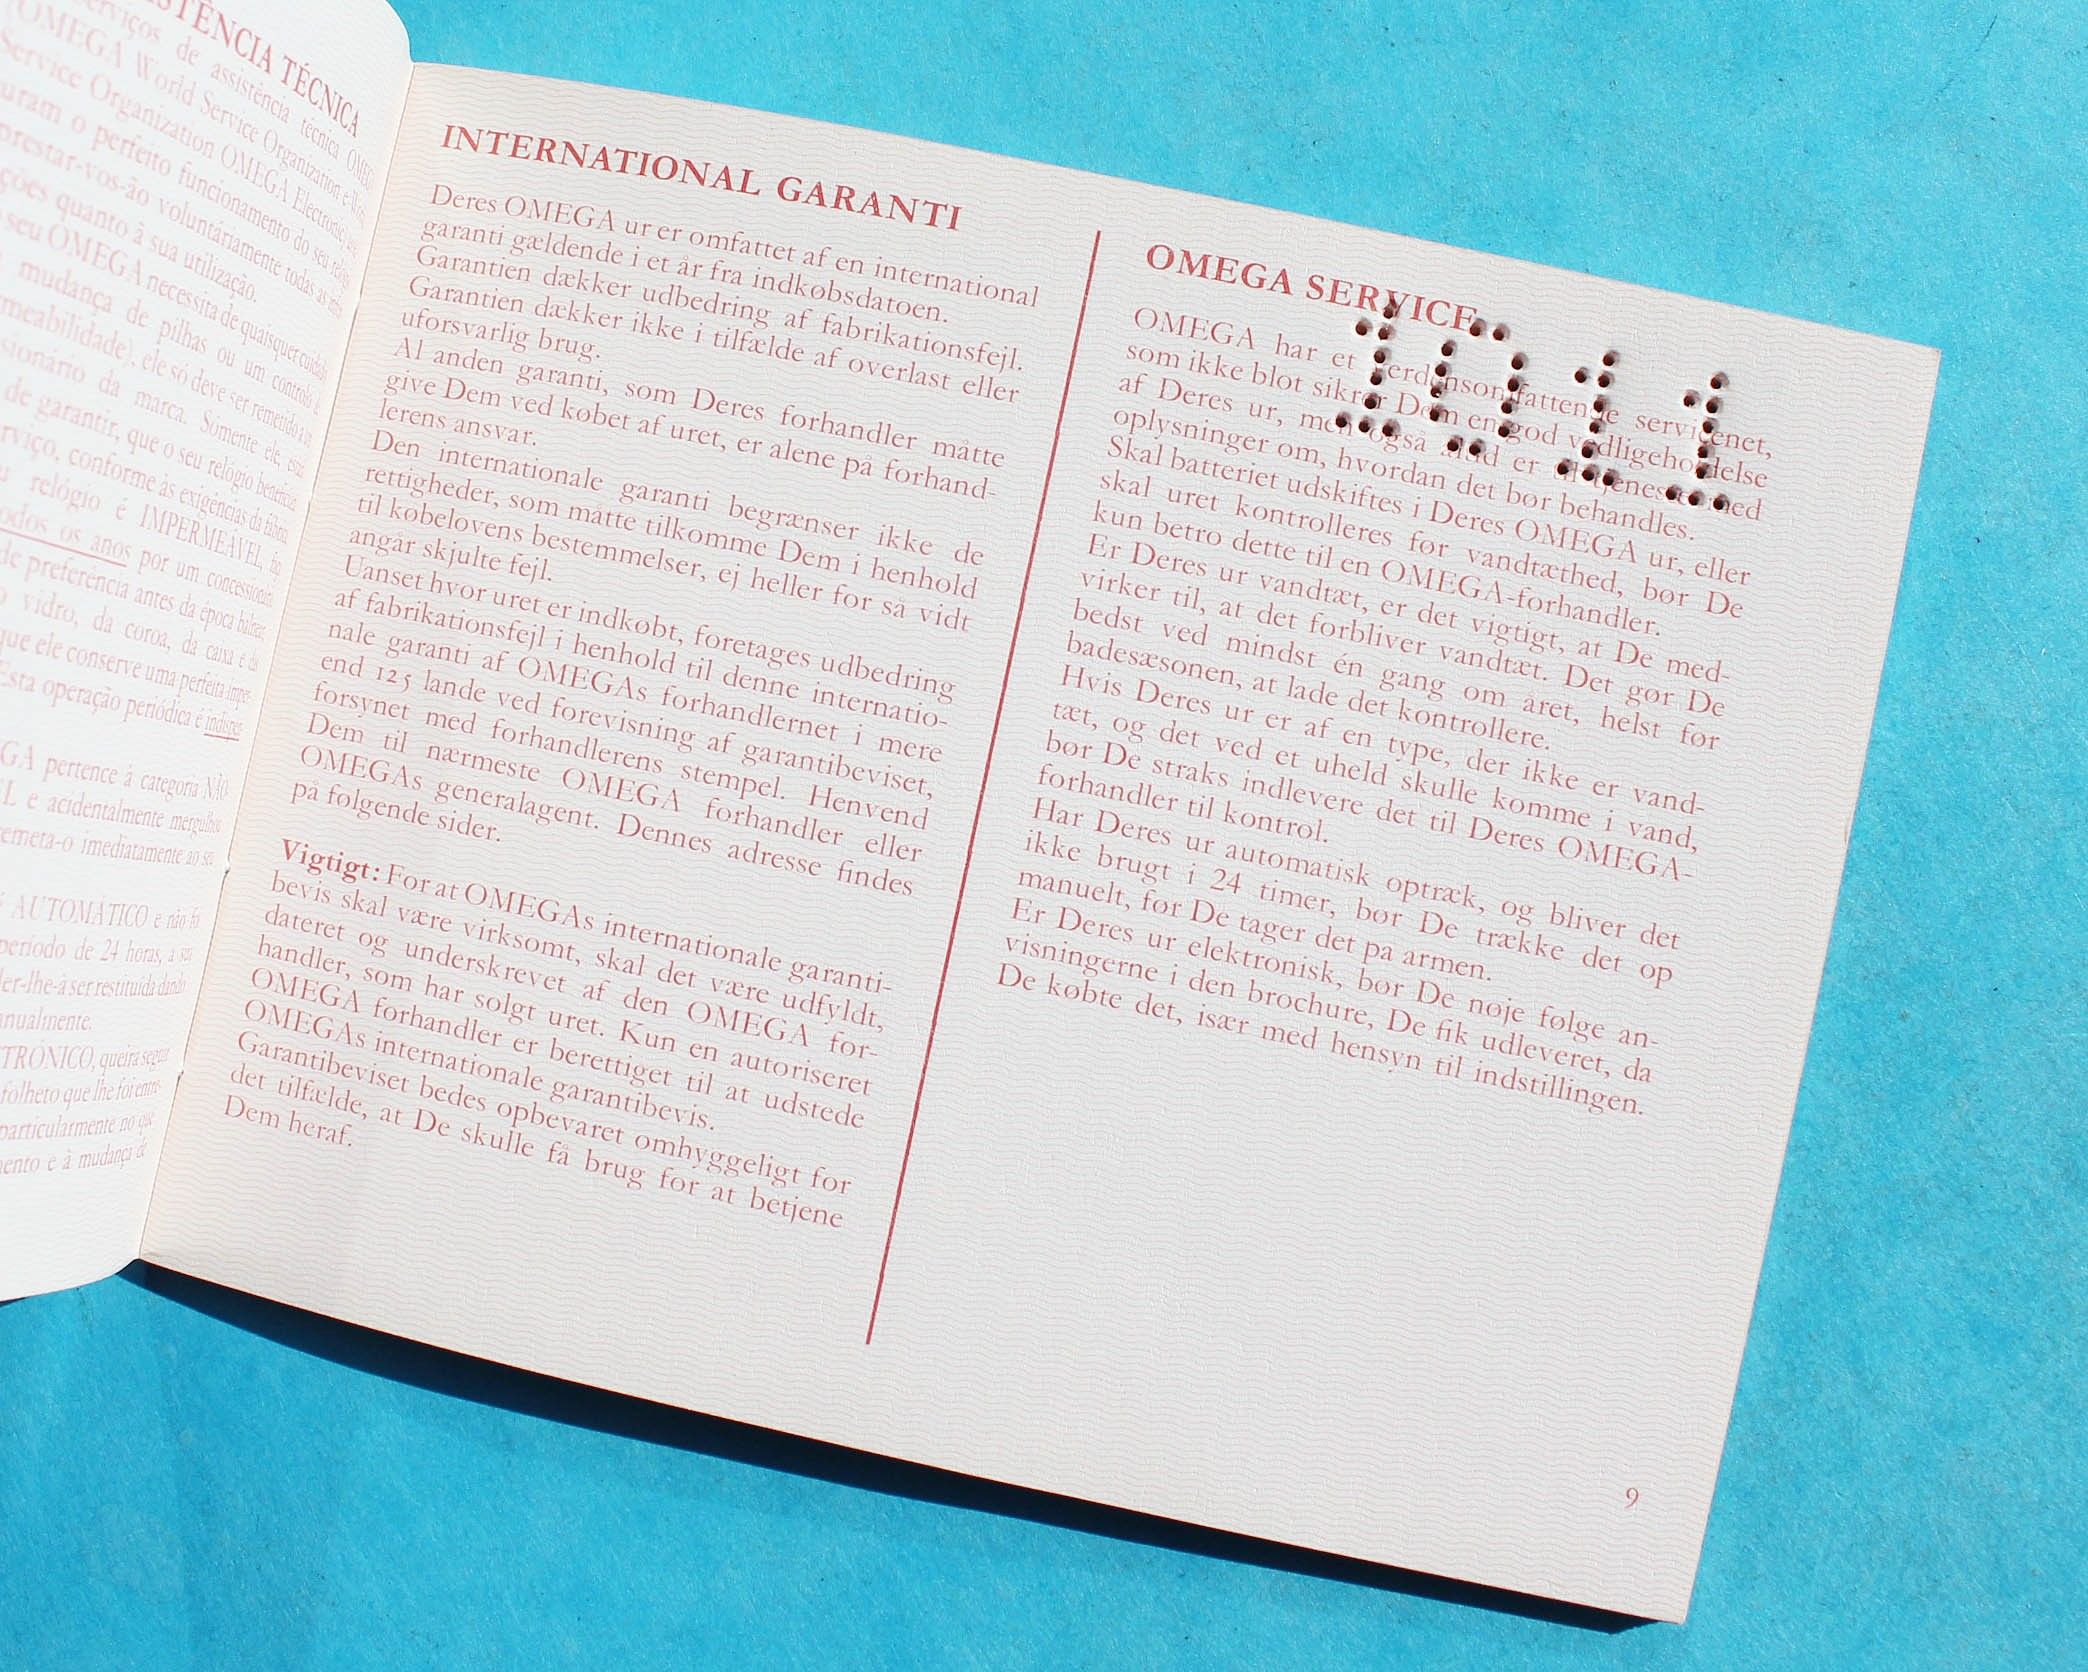 ISTÊNCIA TÉCNICA
serviços de assistência técnica
OMEGA World Service Organization e
Service Organization OMEGA Electronic)
o perfeito funcionamento do seu
prestar-vos-ão voluntáriamente todas as
quanto à sua utilização.
seu OMEGA necessita de quaisquer
mudança de pilhas ou um controlo
ele só deve ser remetido a
da marca. Sómente ele,
de garantir, que o seu relógio
conforme às exigências da
relógio é IMPERMEÁVEL,
os anos por um
de preferência antes da época
vidro, da coroa, da caixa e
que ele conserve uma perfeita
Esta operação periódica é
pertence à categoria NÃO
e acidentalmente
imediatamente ao
AUTOMÁTICO e não
período de 24 horas, a
ser restituída dando
queira
folheto que lhe foi
particularmente no que
e à mudança de
INTERNATIONAL GARANTI
Deres OMEGA ur er omfattet af en international
garanti gældende i et år fra indkøbsdatoen.
Garantien dækker udbedring af fabrikationsfejl.
Garantien dækker ikke i tilfælde af overlast eller
uforsvarlig brug.
Al anden garanti, som Deres forhandler måtte
give Dem ved købet af uret, er alene på forhand-
lerens ansvar.
Den internationale garanti begrænser ikke de
rettigheder, som måtte tilkomme Dem i henhold
til købelovens bestemmelser, ej heller for så vidt
angår skjulte fejl.
Uanset hvor uret er indkøbt, foretages udbedring
af fabrikationsfejl i henhold til denne internatio-
nale garanti af OMEGAs forhandlernet i mere
end 125 lande ved forevisning af garantibeviset,
forsynet med forhandlerens stempel. Henvend
Dem til nærmeste OMEGA forhandler eller
OMEGAs generalagent. Dennes adresse findes
på følgende sider.
Vigtigt: For at OMEGAs internationale garanti-
bevis skal være virksomt, skal det være udfyldt,
dateret og underskrevet af den OMEGA for-
handler, som har solgt uret. Kun en autoriseret
OMEGA forhandler er berettiget til at udstede
OMEGAs internationale garantibevis.
Garantibeviset bedes opbevaret omhyggeligt for
det tilfælde, at De skulle få brug for at betjene
Dem heraf.
OMEGA SERVICE
1011
OMEGA har et verdensomfattende servicenet,
som ikke blot sikrer Dem en god vedligeholdelse
af Deres ur, men også altid er til tjeneste med
oplysninger om, hvordan det bør behandles.
Skal batteriet udskiftes i Deres OMEGA ur, eller
skal uret kontrolleres før vandtæthed, bør De
kun betro dette til en OMEGA-forhandler.
Er Deres ur vandtæt, er det vigtigt, at De med-
virker til, at det forbliver vandtæt. Det gør De
bedst ved mindst én gang om året, helst før
badesæsonen, at lade det kontrollere.
Hvis Deres ur er af en type, der ikke er vand-
tæt, og det ved et uheld skulle komme i vand,
bør De straks indlevere det til Deres OMEGA-
forhandler til kontrol.
Har Deres ur automatisk optræk, og bliver det
ikke brugt i 24 timer, bør De trække det op
manuelt, før De tager det pa armen.
Er Deres ur elektronisk, bør De nøje følge an-
visningerne i den brochure, De fik udleveret, da
De købte det, især med hensyn til indstillingen.
9